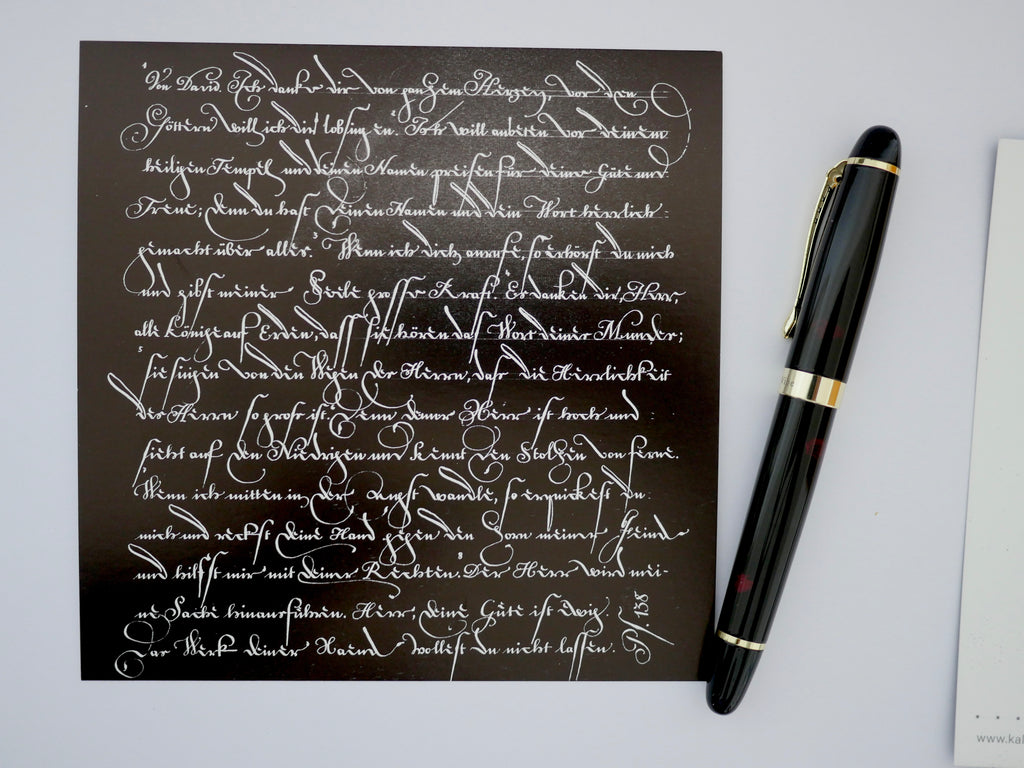 ¹Von David. Ich danke dir von ganzem Herzen, vor den
Göttern will ich dir lobsingen. ²Ich will anbeten vor deinem
heiligen Tempel und deinen Namen preisen für deine Güte und
Treue; denn du hast deinen Namen und dein Wort herrlich
gemacht über alles. ³Wenn ich dich anrufe, so erhörst du mich
und gibst meiner Seele grosse Kraft. ⁴Es danken dir, Herr,
alle Könige auf Erden, dass sie hören das Wort deines Mundes;
⁵sie singen von den Wegen des Herrn, dass die Herrlichkeit
des Herrn so gross ist. ⁶Denn der Herr ist hoch und
sieht auf den Niedrigen und kennt den Stolzen von ferne.
⁷Wenn ich mitten in der Angst wandle, so erquickest du
mich und reckst deine Hand gegen den Zorn meiner Feinde
und hilfst mir mit deiner Rechten. ⁸Der Herr wird mei-
ne Sache hinausführen. Herr, deine Güte ist ewig.
Das Werk deiner Haend wollest du nicht lassen.
Ps. 138
www.kal